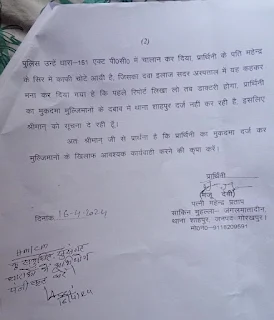 (2)
पुलिस उन्हें धारा-151 एक्ट पी०सी० में चालान कर दिया, प्रार्थिनी के पति महेन्द्र
के सिर में काफी चोटें आयी है, जिसका दवा इलाज सदर अस्पताल में यह कहकर
मना कर दिया गया है कि पहले रिपोर्ट लिखा लो तब डाक्टरी होगा, प्रार्थिनी
का मुकदमा मुल्जिमानों के दबाव में थाना शाहपुर दर्ज नहीं कर रही है, इसलिए
श्रीमान् को सूचना दे रही है।
अतः श्रीमान् जी से प्रार्थना है कि प्रार्थिनी का मुकदमा दर्ज कर
मुल्जिमानों के खिलाफ आवश्यक कार्यवाही करने की कृपा करें।
प्रार्थिनी
(मंजू देवी)
पत्नी महेन्द्र प्रताप
साकिन मुहल्ला- जंगलमातादीन
थाना शाहपुर, जनपद-गोरखपुर।
दिनांक